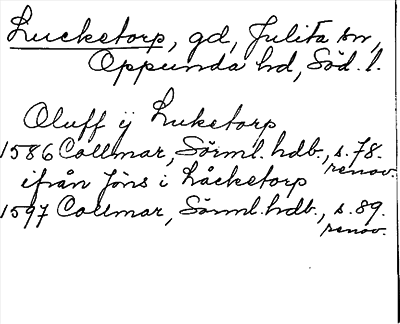 Lucketorp, gd, Julita sn,
Oppunda hd, Söd. l.
Oluff ÿ Luketorp
1586 Collmar, Sörml. hdb., s. 78.
renov.
ifrån Jöns i Låcketorp
1597 Collmar, Sörml. hdb., s. 89.
renov.